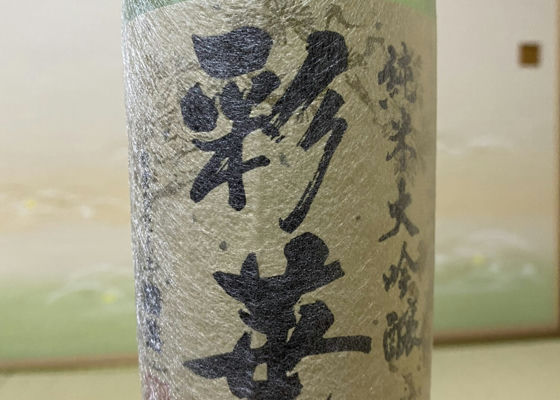 純米大吟醸
彩華